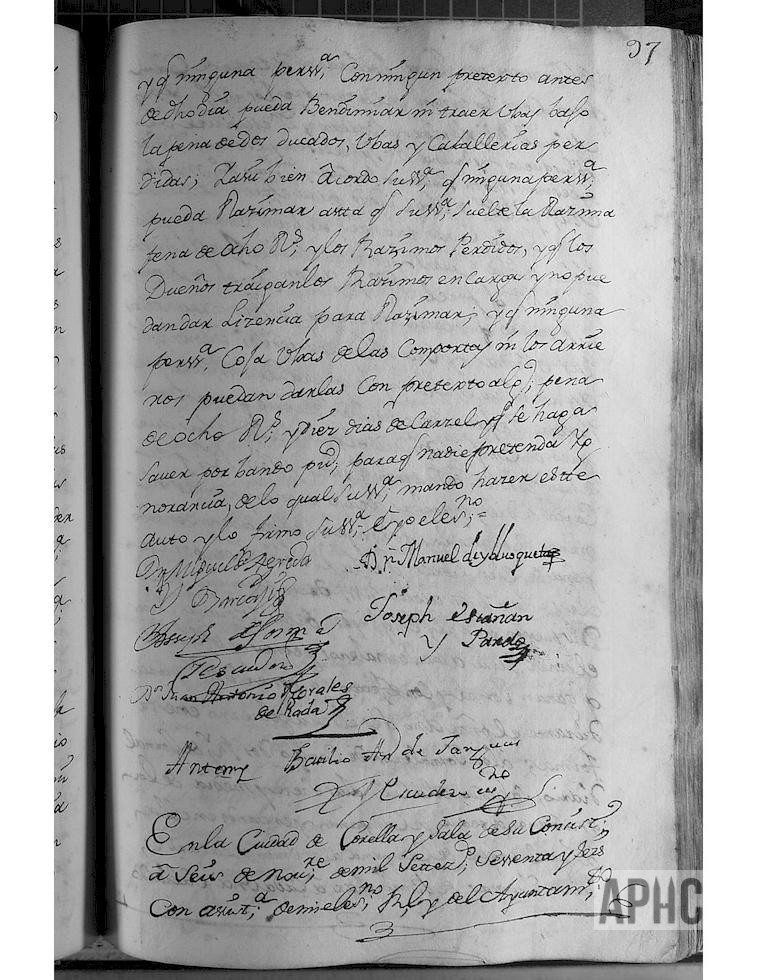 97
y q ninguna perss.a Con ningun pretexto antes
de dho dia pueda Bendimiar ni traer Ubas bajo
la pena de dos ducados, Ubas y Caballerias per
didas; Tambien Acordo Su SS.a q ninguna perss.a
pueda Razimar asta q Su SS.a suelte la Razima
pena de ocho R.s y los Razimos Perdidos, y q los
Dueños traigan los Razimos en Carga y no pue
dan dar Lizencia para Razimar; y q ninguna
perss.a Coja Ubas de las Comportas ni los arrie
ros puedan darlas Con pretexto alg.o pena
de ocho R.s y diez dias de Carzel y q se haga
saver por bando pu.co para q nadie pretenda Yg
norancia, de lo qual Su SS.a mando hazer este
auto y lo firmo Su SS.a E yo el es.no =
D.n Miguel de Sereda
D.n Manuel de Ybusqueta
Joseph Escudero
Joseph Estañan
y Pardo
D.n Juan Antonio Morales
de Rada
Antemy Basilio An.o de
Escudero
En la Ciudad de Corella y Sala de su Consist.o
a Seis de Nov.re de mil Setez.s Sesenta y Seis
Con asist.a de mi el es.no R.l y del Ayuntam.to
APHC